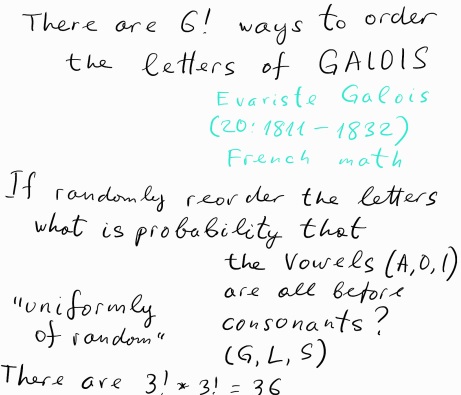 There are 6! ways to order
the letters of GALOIS
Evariste Galois
(20: 1811 - 1832)
French math
If randomly reorder the letters
what is probability that
the Vowels (A,O,I)
are all before
"uniformly
of random"
consonants?
(G, L, S)
There are 3! * 3! = 36